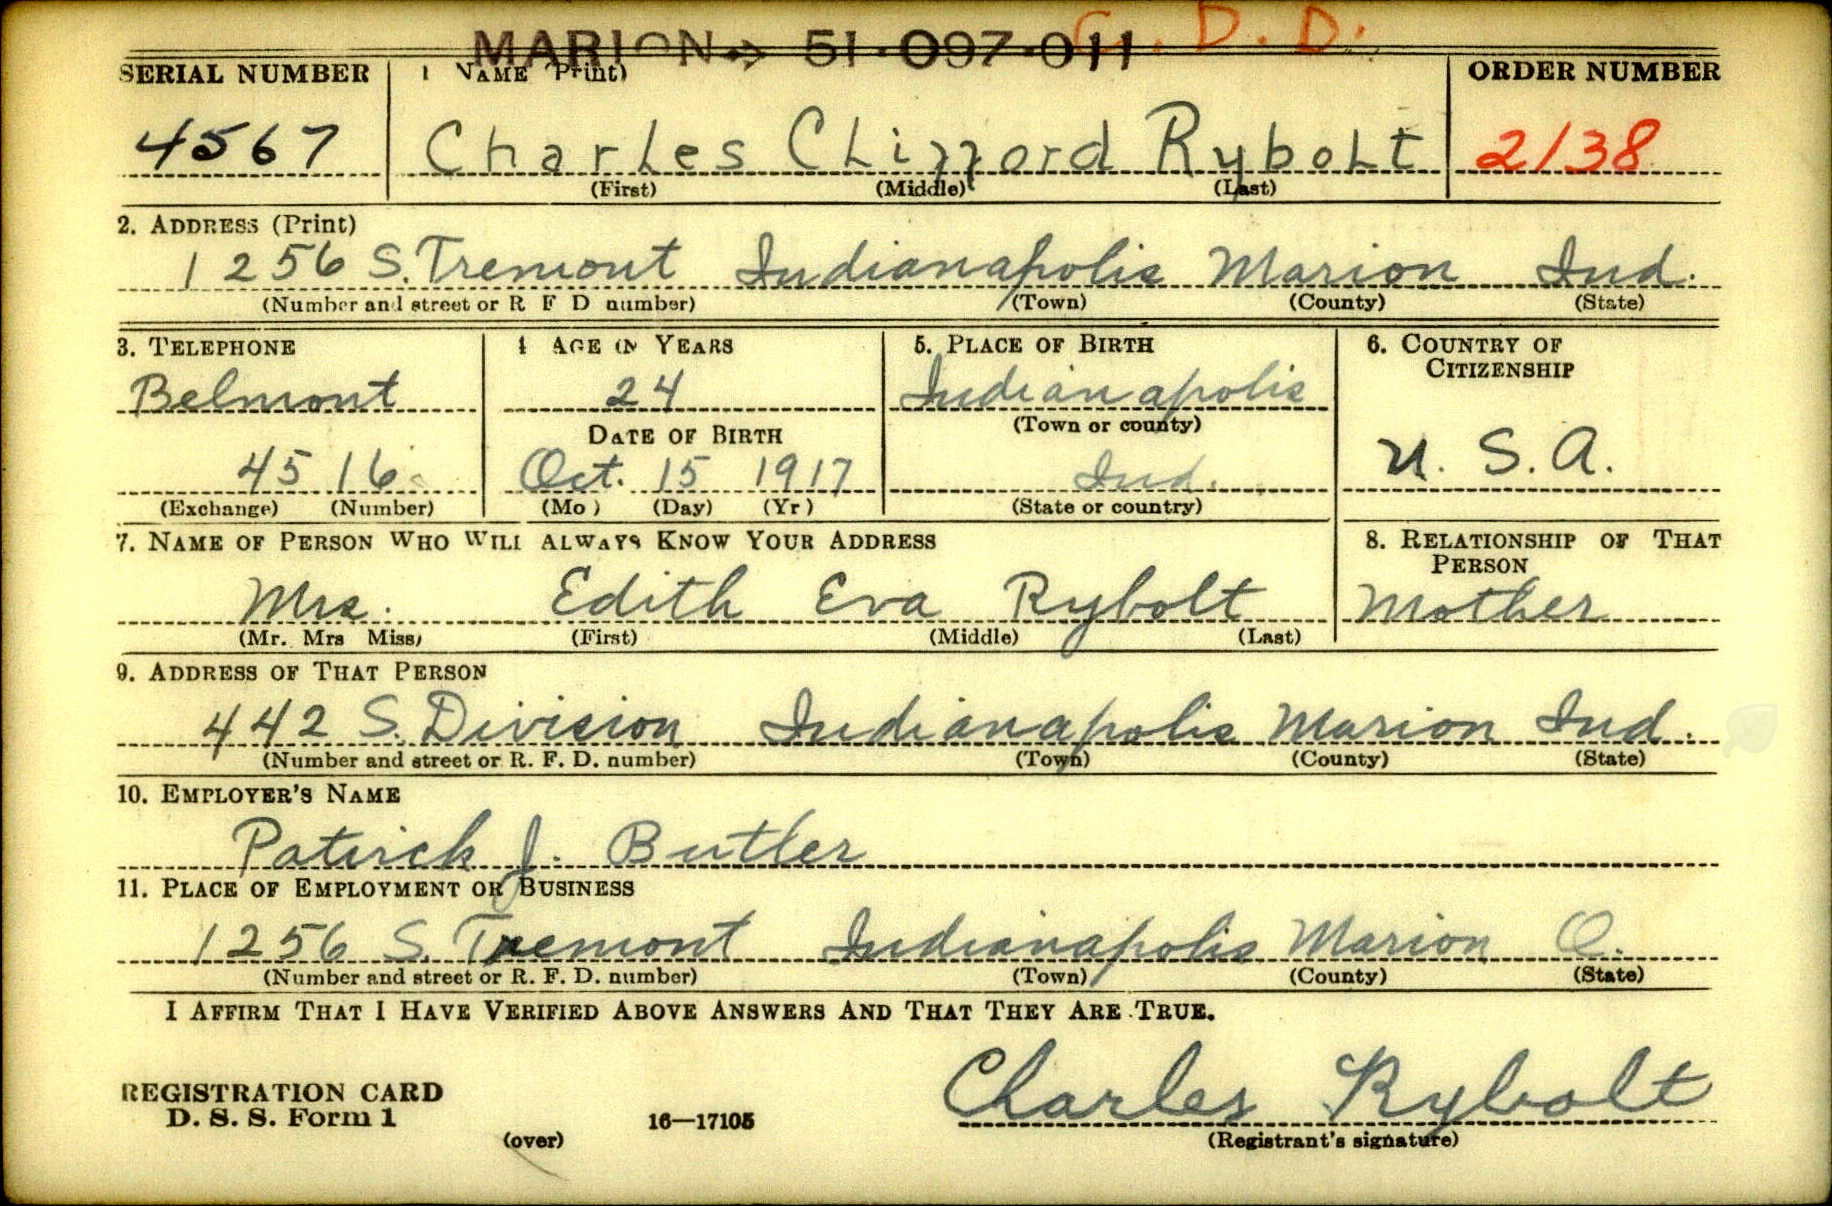 MARION → 51-097-011 C. D. D.
SERIAL NUMBER 1 NAME (Print) ORDER NUMBER
4567 Charles Clifford Rybolt 2138
(First) (Middle) (Last)
2. ADDRESS (Print)
1256 S. Tremont Indianapolis Marion Ind.
(Number and street or R F D number) (Town) (County) (State)
3. TELEPHONE 4 AGE IN YEARS 5. PLACE OF BIRTH 6. COUNTRY OF
CITIZENSHIP
Belmont 24 Indianapolis
DATE OF BIRTH (Town or county)
4516 Oct. 15 1917 Ind. U. S. A.
(Exchange) (Number) (Mo) (Day) (Yr) (State or country)
7. NAME OF PERSON WHO WILL ALWAYS KNOW YOUR ADDRESS 8. RELATIONSHIP OF THAT
PERSON
Mrs. Edith Eva Rybolt Mother
(Mr. Mrs Miss) (First) (Middle) (Last)
9. ADDRESS OF THAT PERSON
442 S. Division Indianapolis Marion Ind.
(Number and street or R. F. D. number) (Town) (County) (State)
10. EMPLOYER'S NAME
Patirck J. Butler
11. PLACE OF EMPLOYMENT OR BUSINESS
1256 S. Tremont Indianapolis Marion O.
(Number and street or R. F. D. number) (Town) (County) (State)
I AFFIRM THAT I HAVE VERIFIED ABOVE ANSWERS AND THAT THEY ARE TRUE.
Charles Rybolt
REGISTRATION CARD
D. S. S. Form 1 16—17105
(over) (Registrant's signature)